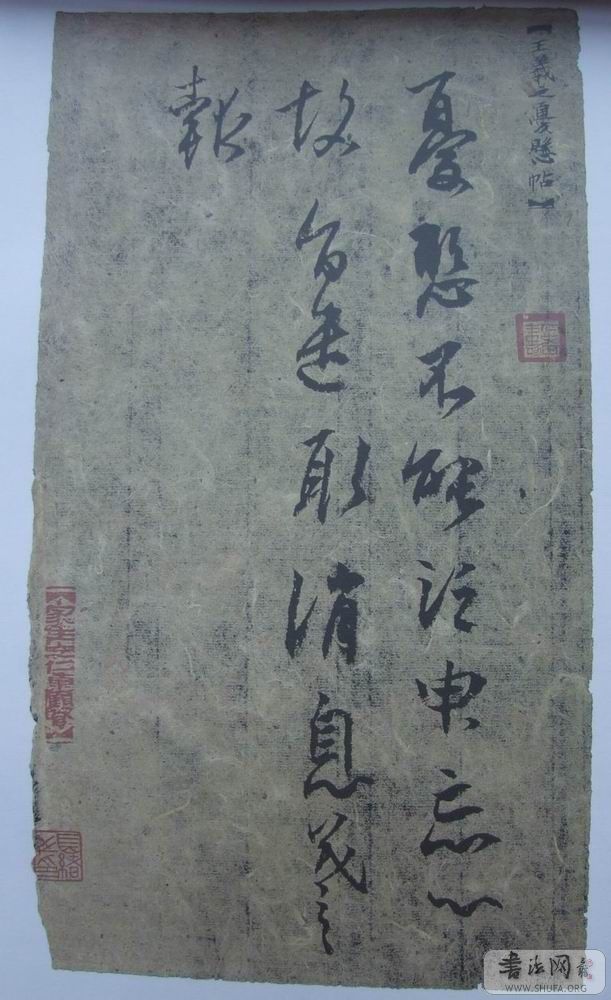 【王羲之憂懸帖】
憂懸不能須臾忘心
故旨遣取消息羲之
報
書法网
WWW.SHUFA.ORG